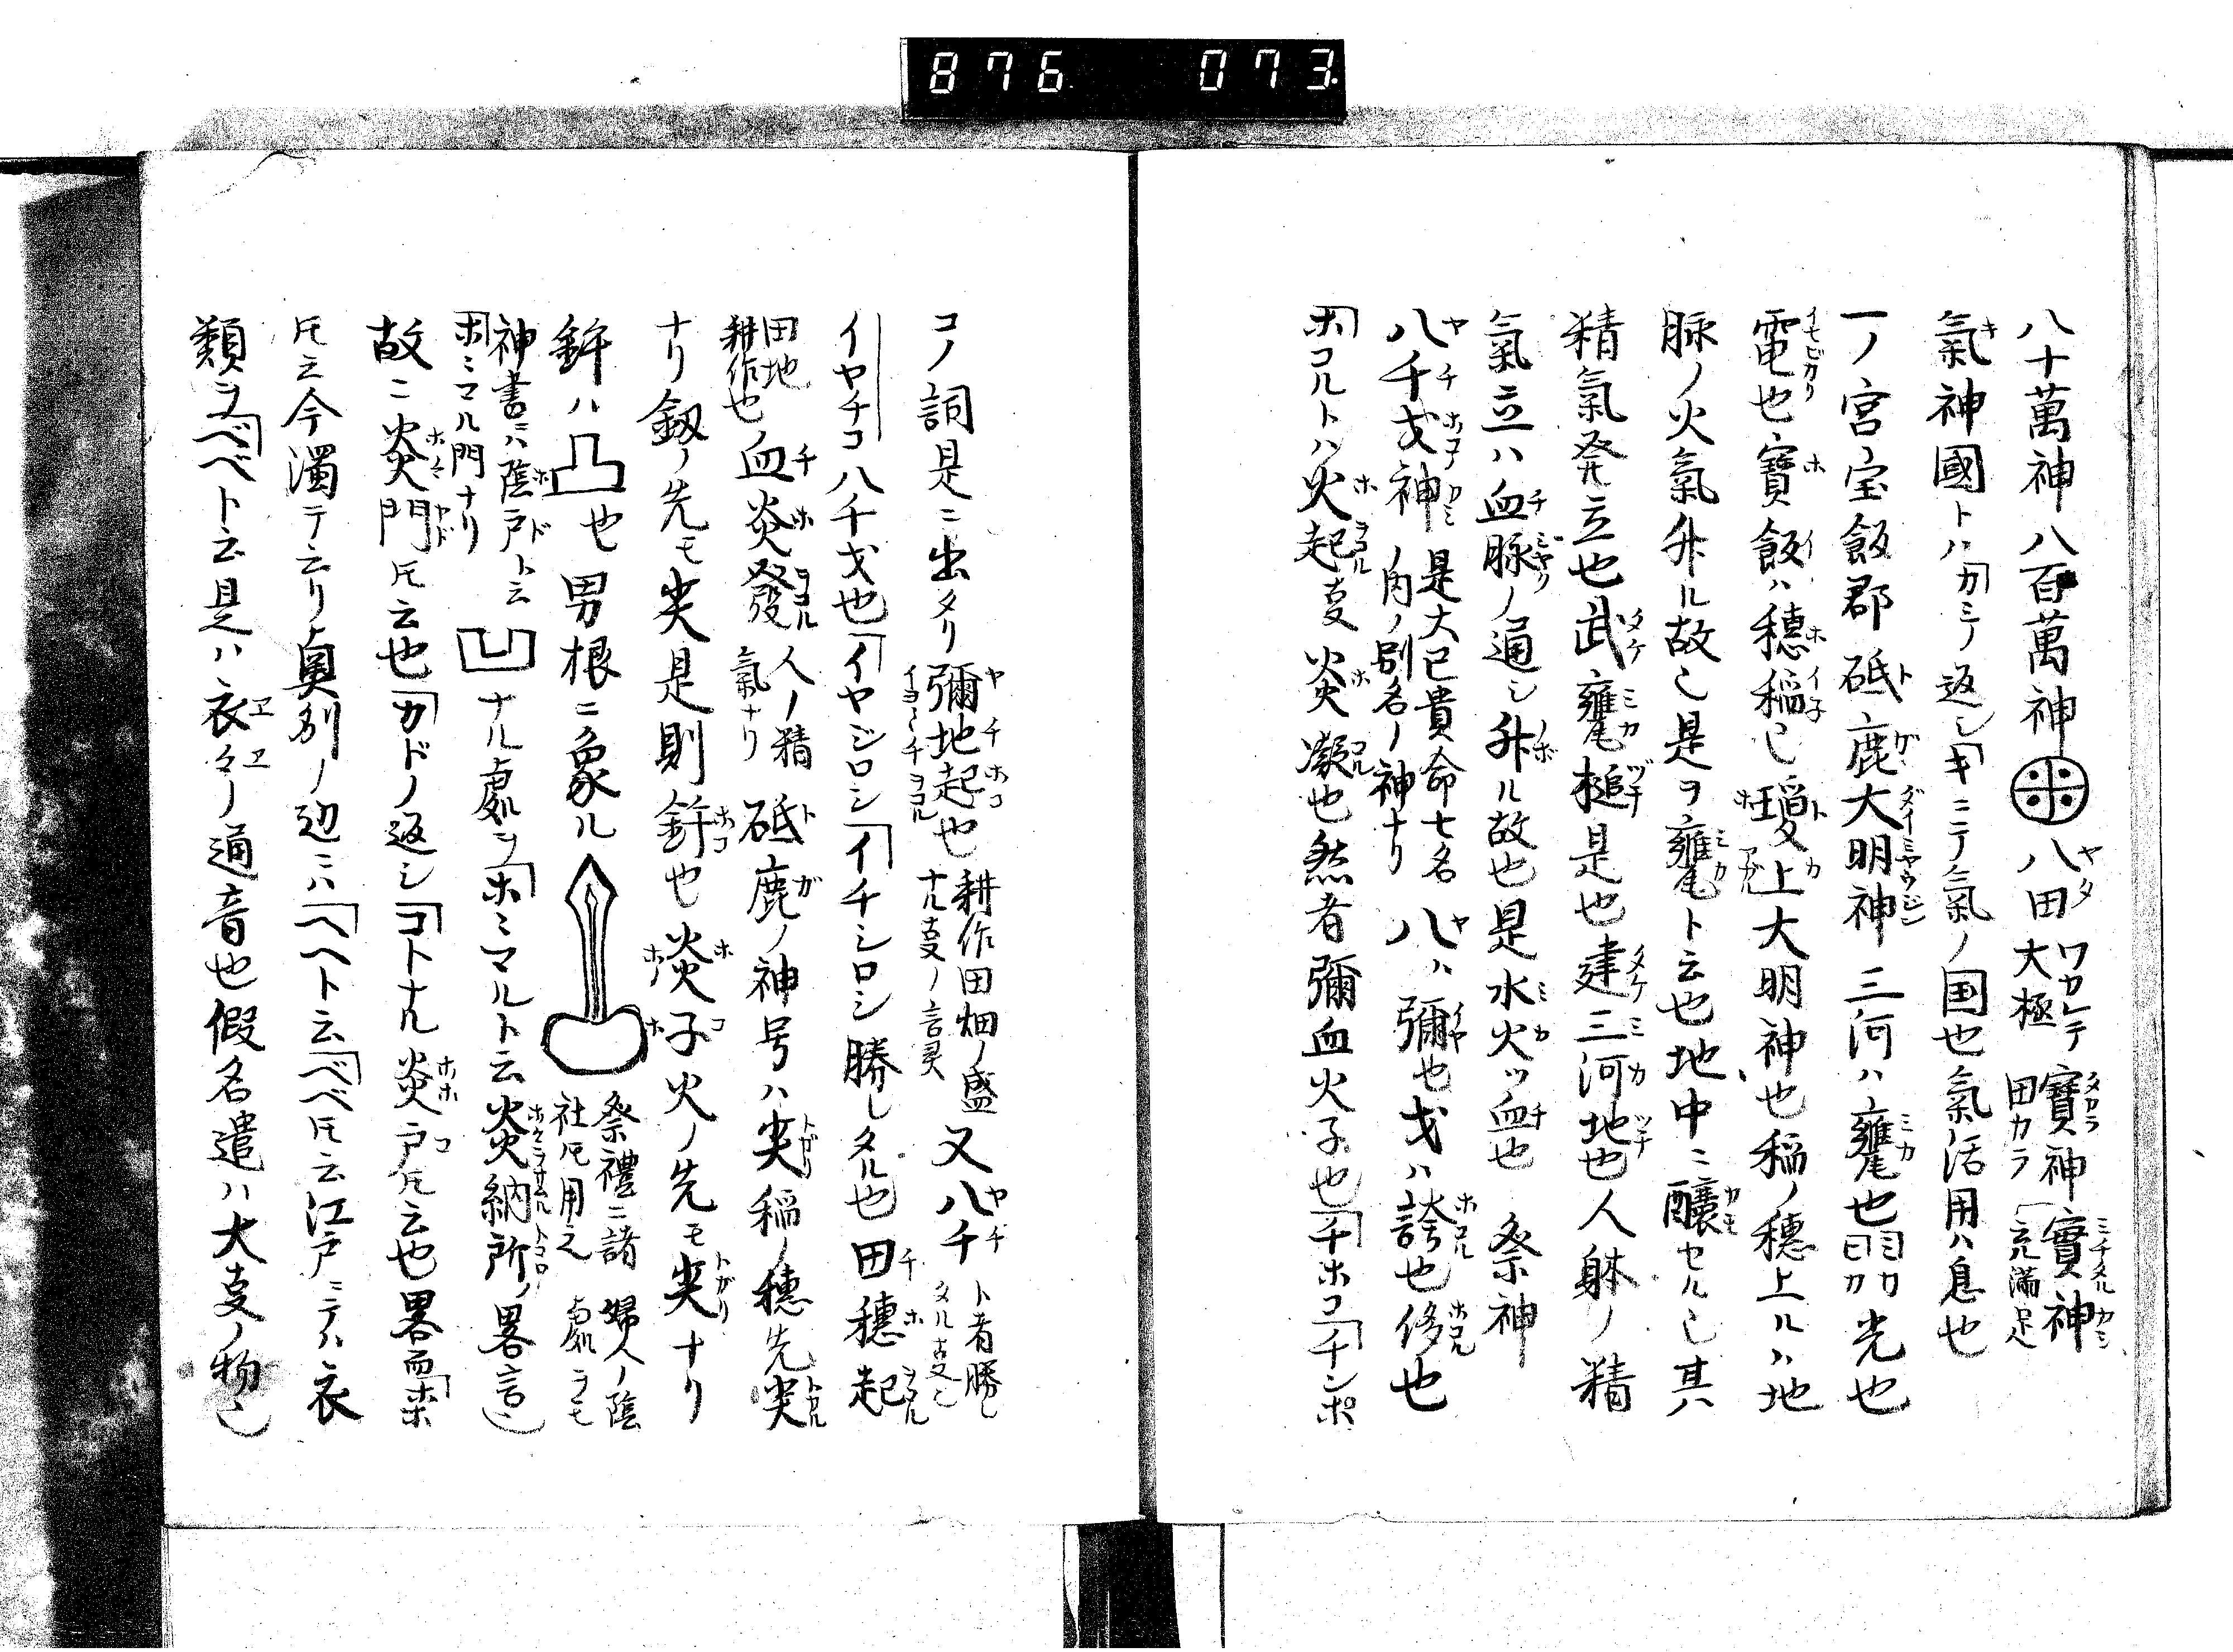 876 073
八十萬神八百萬神 八田 大極 ワカレテ 田カラ 寶神 充滿足 實神
氣神國トハカミノ返シキニテ氣ノ国也氣活用ハ息也
一ノ宮宝飯郡 砥鹿大明神 三河ハ甕也 光也
電也寶飯ハ穗稲也 上大明神也稲ノ穗上ルハ地
脉ノ火氣升ル故也是ヲ甕ト云也地中ニ釀セル也其ハ
精氣発立也武甕槌是也建三河地也人躰ノ精
氣立ハ血脉ノ通シ升ル故也是水火ツ血也 祭神
八千戈神 是大己貴命七名ノ内ノ別名ノ神ナリ 八ハ彌也戈ハ誇也侈也
ホコルトハ火起 炎凝也然者彌血火子也チホコチンポ
コノ詞是ニ出タリ彌地起也 耕作田畑ノ盛ナル ノ言灵 又八千 ト者勝シタル
イヤチコ八千戈也イヤジロシイチシロシ勝シタル也田穗起
田地耕作也血炎發 人ノ精氣ナリ 砥鹿ノ神号ハ尖稲ノ穗先尖
ナリ釼ノ先モ尖是則鉾也炎子火ノ先モ尖ナリ
鉾ハ凸也男根ニ象ル 祭禮ニ諸社ニ用之 婦人ノ陰處ヲモ
神書ニハ陰戸ト云 ホミマル門ナリ 凹ナル處ヲホミマルト云炎納所ノ畧言
故ニ炎門 云也カドノ返シコトナル炎戸 云也畧而ホ
 云今濁テ云リ奥列ノ辺ニハヘヘト云ベベ 云江戸ニテハ衣
類ヲベベト云是ハ衣々ノ通音也假名遣ハ大 ノ物也